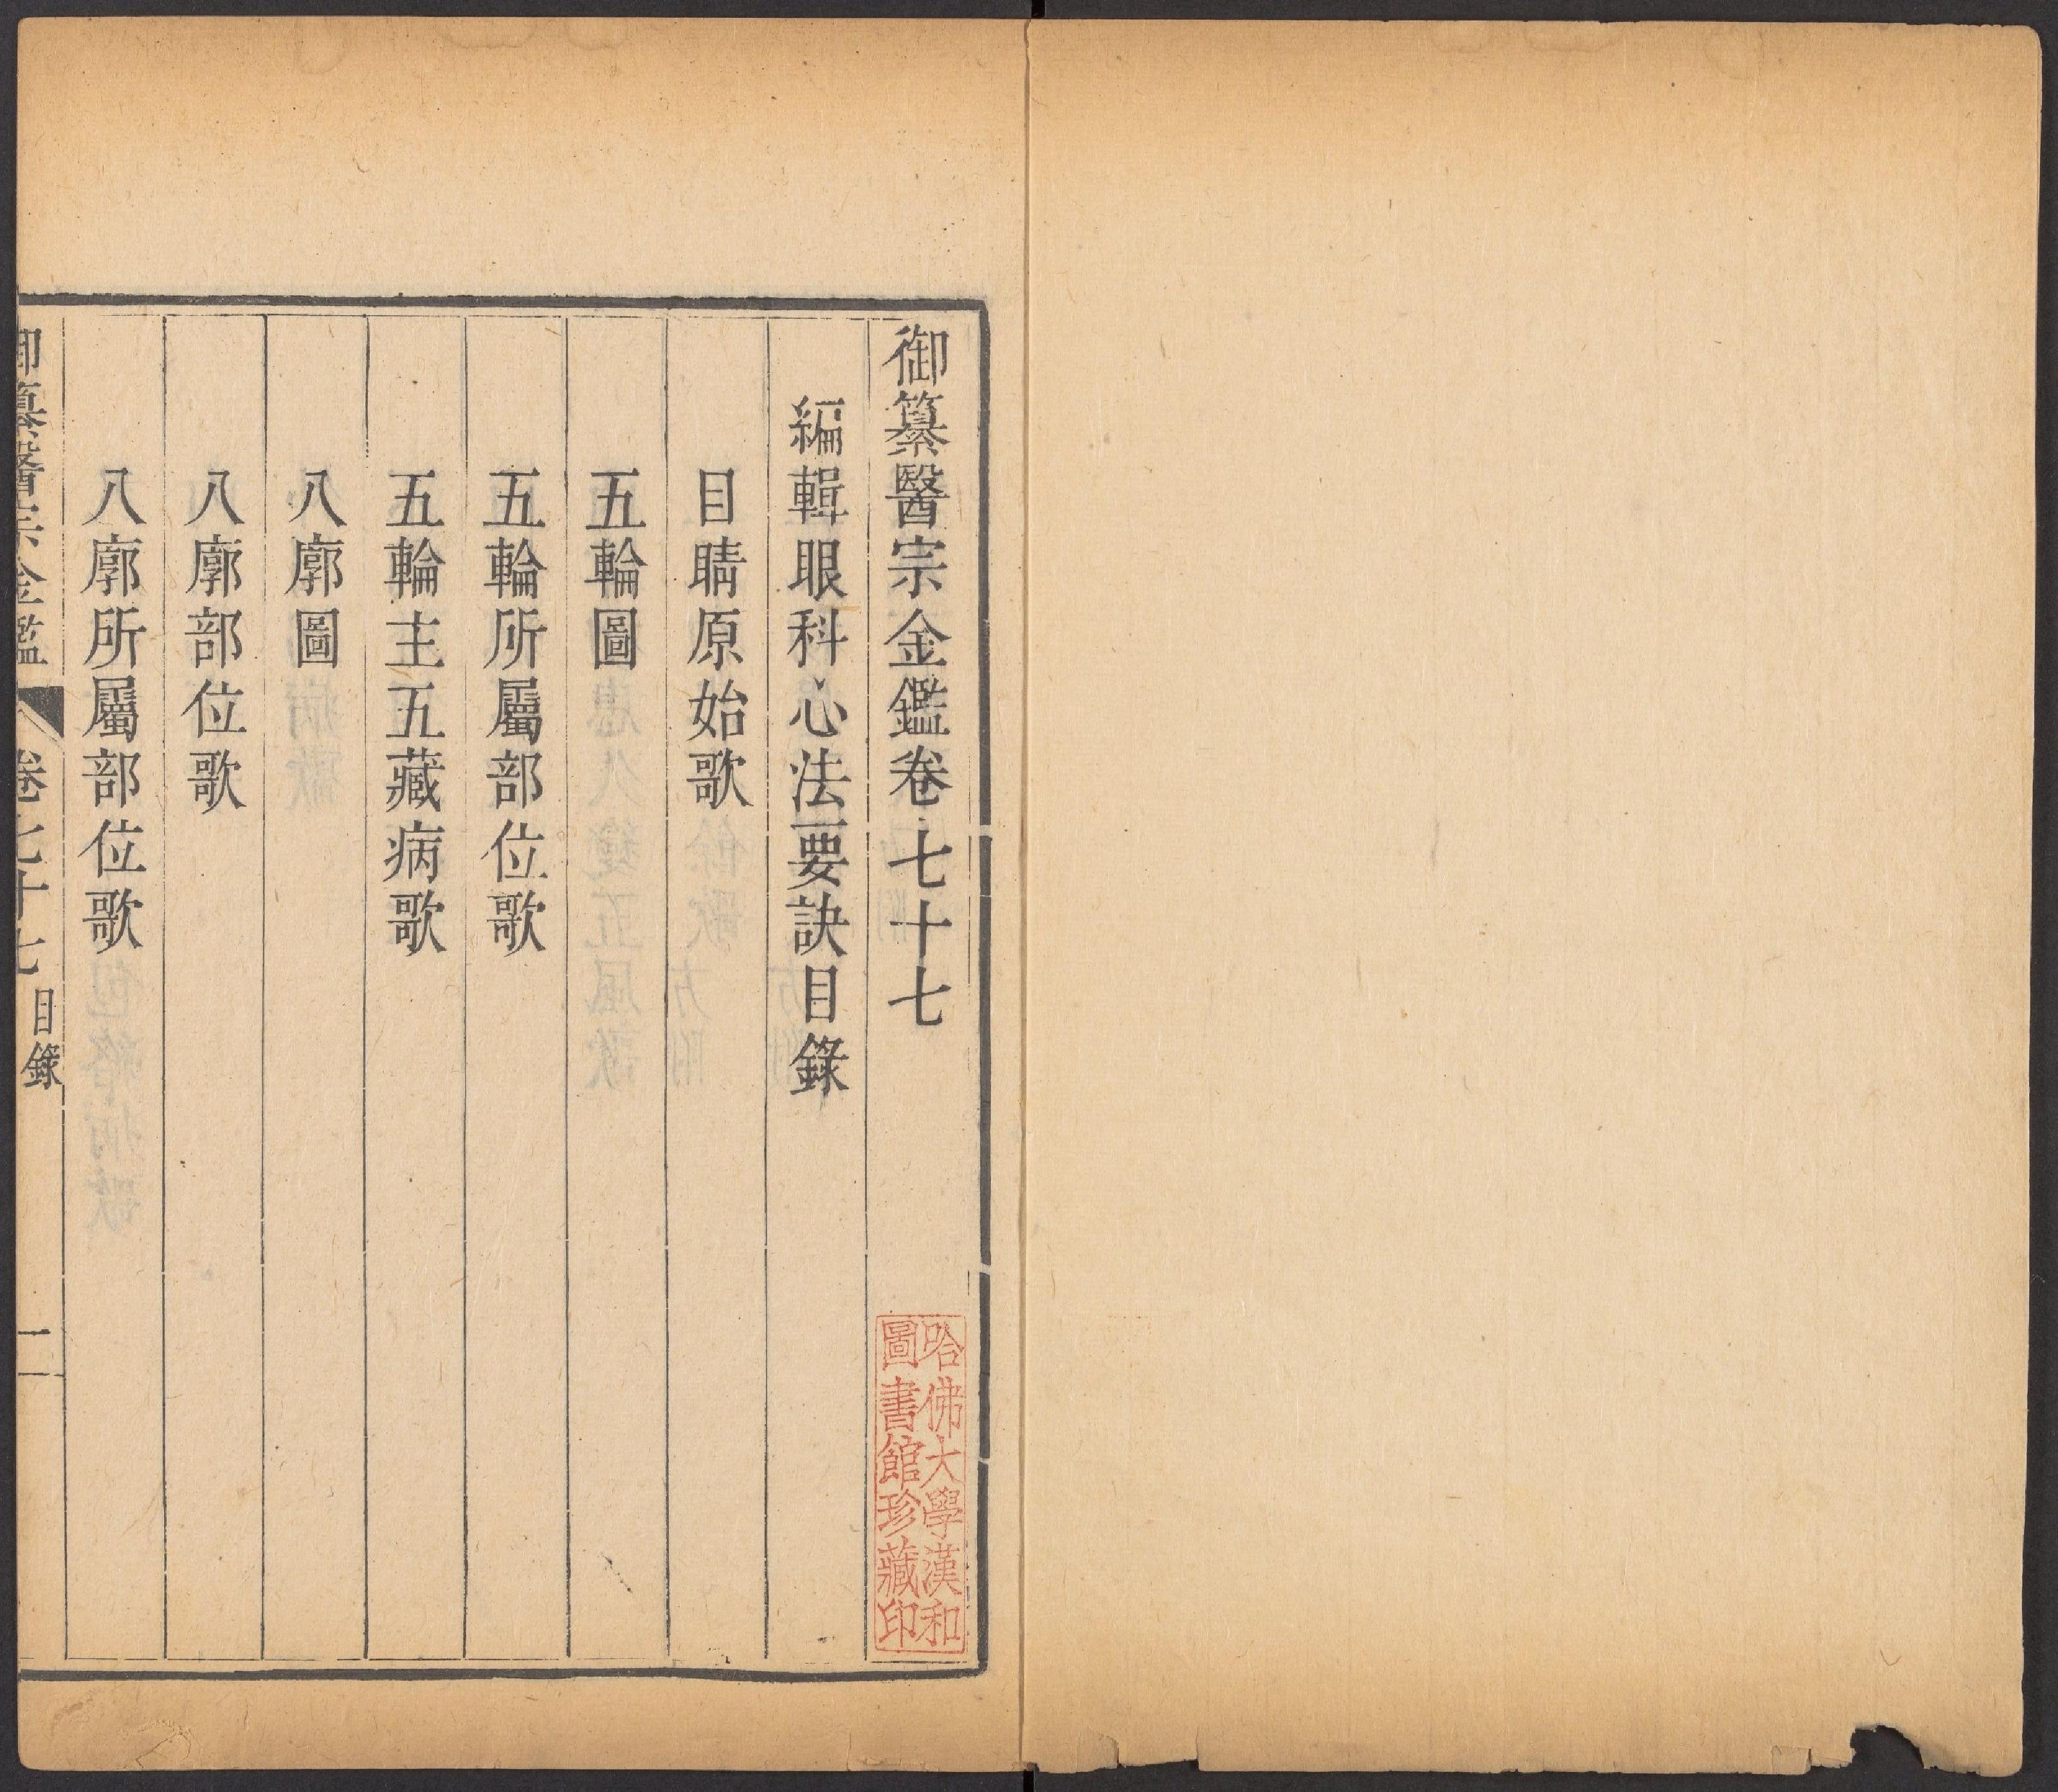 御纂醫宗金鑑卷七十七
編輯眼科心法要訣目錄
目睛原始歌
五輪圖
五輪所屬部位歌
五輪主五藏病歌
八廓圖
八廓部位歌
八廓所屬部位歌
御纂醫宗金鑑 卷七十七 目錄
哈佛大學漢和
圖書館珍藏印